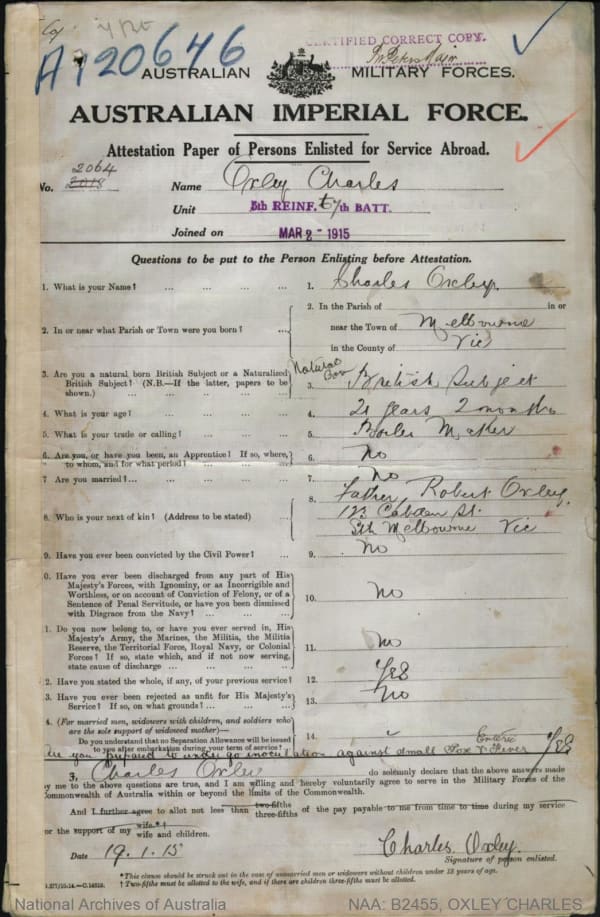 A120646
CERTIFIED CORRECT COPY.
AUSTRALIAN MILITARY FORCES.
AUSTRALIAN IMPERIAL FORCE.
Attestation Paper of Persons Enlisted for Service Abroad.
2064
No. 2018 Name Oxley Charles
Unit 5th REINF. to 7th BATT.
Joined on MAR 2 - 1915
Questions to be put to the Person Enlisting before Attestation.
1. What is your Name? ... ... ... ... 1. Charles Oxley.
2. In or near what Parish or Town were you born? ... 2. In the Parish of in or
near the Town of Melbourne
in the County of Vic
3. Are you a natural born British Subject or a Naturalized Natural Born
British Subject? (N.B.—If the latter, papers to be 3. British Subject
shown.) ... ... ... ...
4. What is your age? ... ... ... ... 4. 21 years 2 months
5. What is your trade or calling? ... ... ... 5. Boiler Maker
6. Are you, or have you been, an Apprentice? If so, where, 6. No
to whom, and for what period? ... ...
7 Are you married? ... ... ... ... 7. No
8. Who is your next of kin? (Address to be stated) ... 8. Father Robert Oxley.
123 Cobden St.
Sth Melbourne Vic
9. Have you ever been convicted by the Civil Power? ... 9. No
0. Have you ever been discharged from any part of His
Majesty's Forces, with Ignominy, or as Incorrigible and
Worthless, or on account of Conviction of Felony, or of a 10. No
Sentence of Penal Servitude, or have you been dismissed
with Disgrace from the Navy? ... ...
1. Do you now belong to, or have you ever served in, His
Majesty's Army, the Marines, the Militia, the Militia
Reserve, the Territorial Force, Royal Navy, or Colonial 11. No
Forces? If so, state which, and if not now serving,
state cause of discharge ... ... ...
2. Have you stated the whole, if any, of your previous service? 12. YES
3. Have you ever been rejected as unfit for His Majesty's 13. No
Service? If so, on what grounds? ... ...
4. (For married men, widowers with children, and soldiers who
are the sole support of widowed mother)—
Do you understand that no Separation Allowance will be issued 14.
to you after embarkation during your term of service?
Are you prepared to undergo inoculation against Small Pox & Enteric Fever YES
3, Charles Oxley do solemnly declare that the above answers made
by me to the above questions are true, and I am willing and hereby voluntarily agree to serve in the Military Forces of the
Commonwealth of Australia within or beyond the limits of the Commonwealth.
And I further agree to allot not less than two-fifths three-fifths of the pay payable to me from time to time during my service
for the support of my wife.*† wife and children.
Date 19.1.15 Charles Oxley.
Signature of person enlisted.
*This clause should be struck out in the case of unmarried men or widowers without children under 18 years of age.
† Two-fifths must be allotted to the wife, and if there are children three-fifths must be allotted.
National Archives of Australia NAA: B2455, OXLEY CHARLES